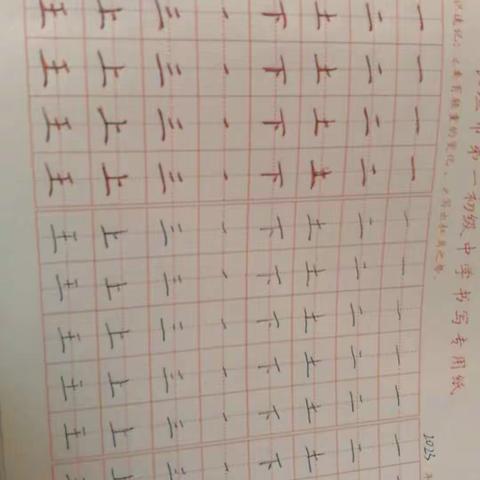 市第一初级中学书写专用纸
要有轻重的变化
一一一一一一一一一一
二二二二二二二二二二
土土土土土土土土土土
下下下下下下下下下下
三三三三三三三三三三
上上上上上上上上上上
王王王王王王王王王
2023